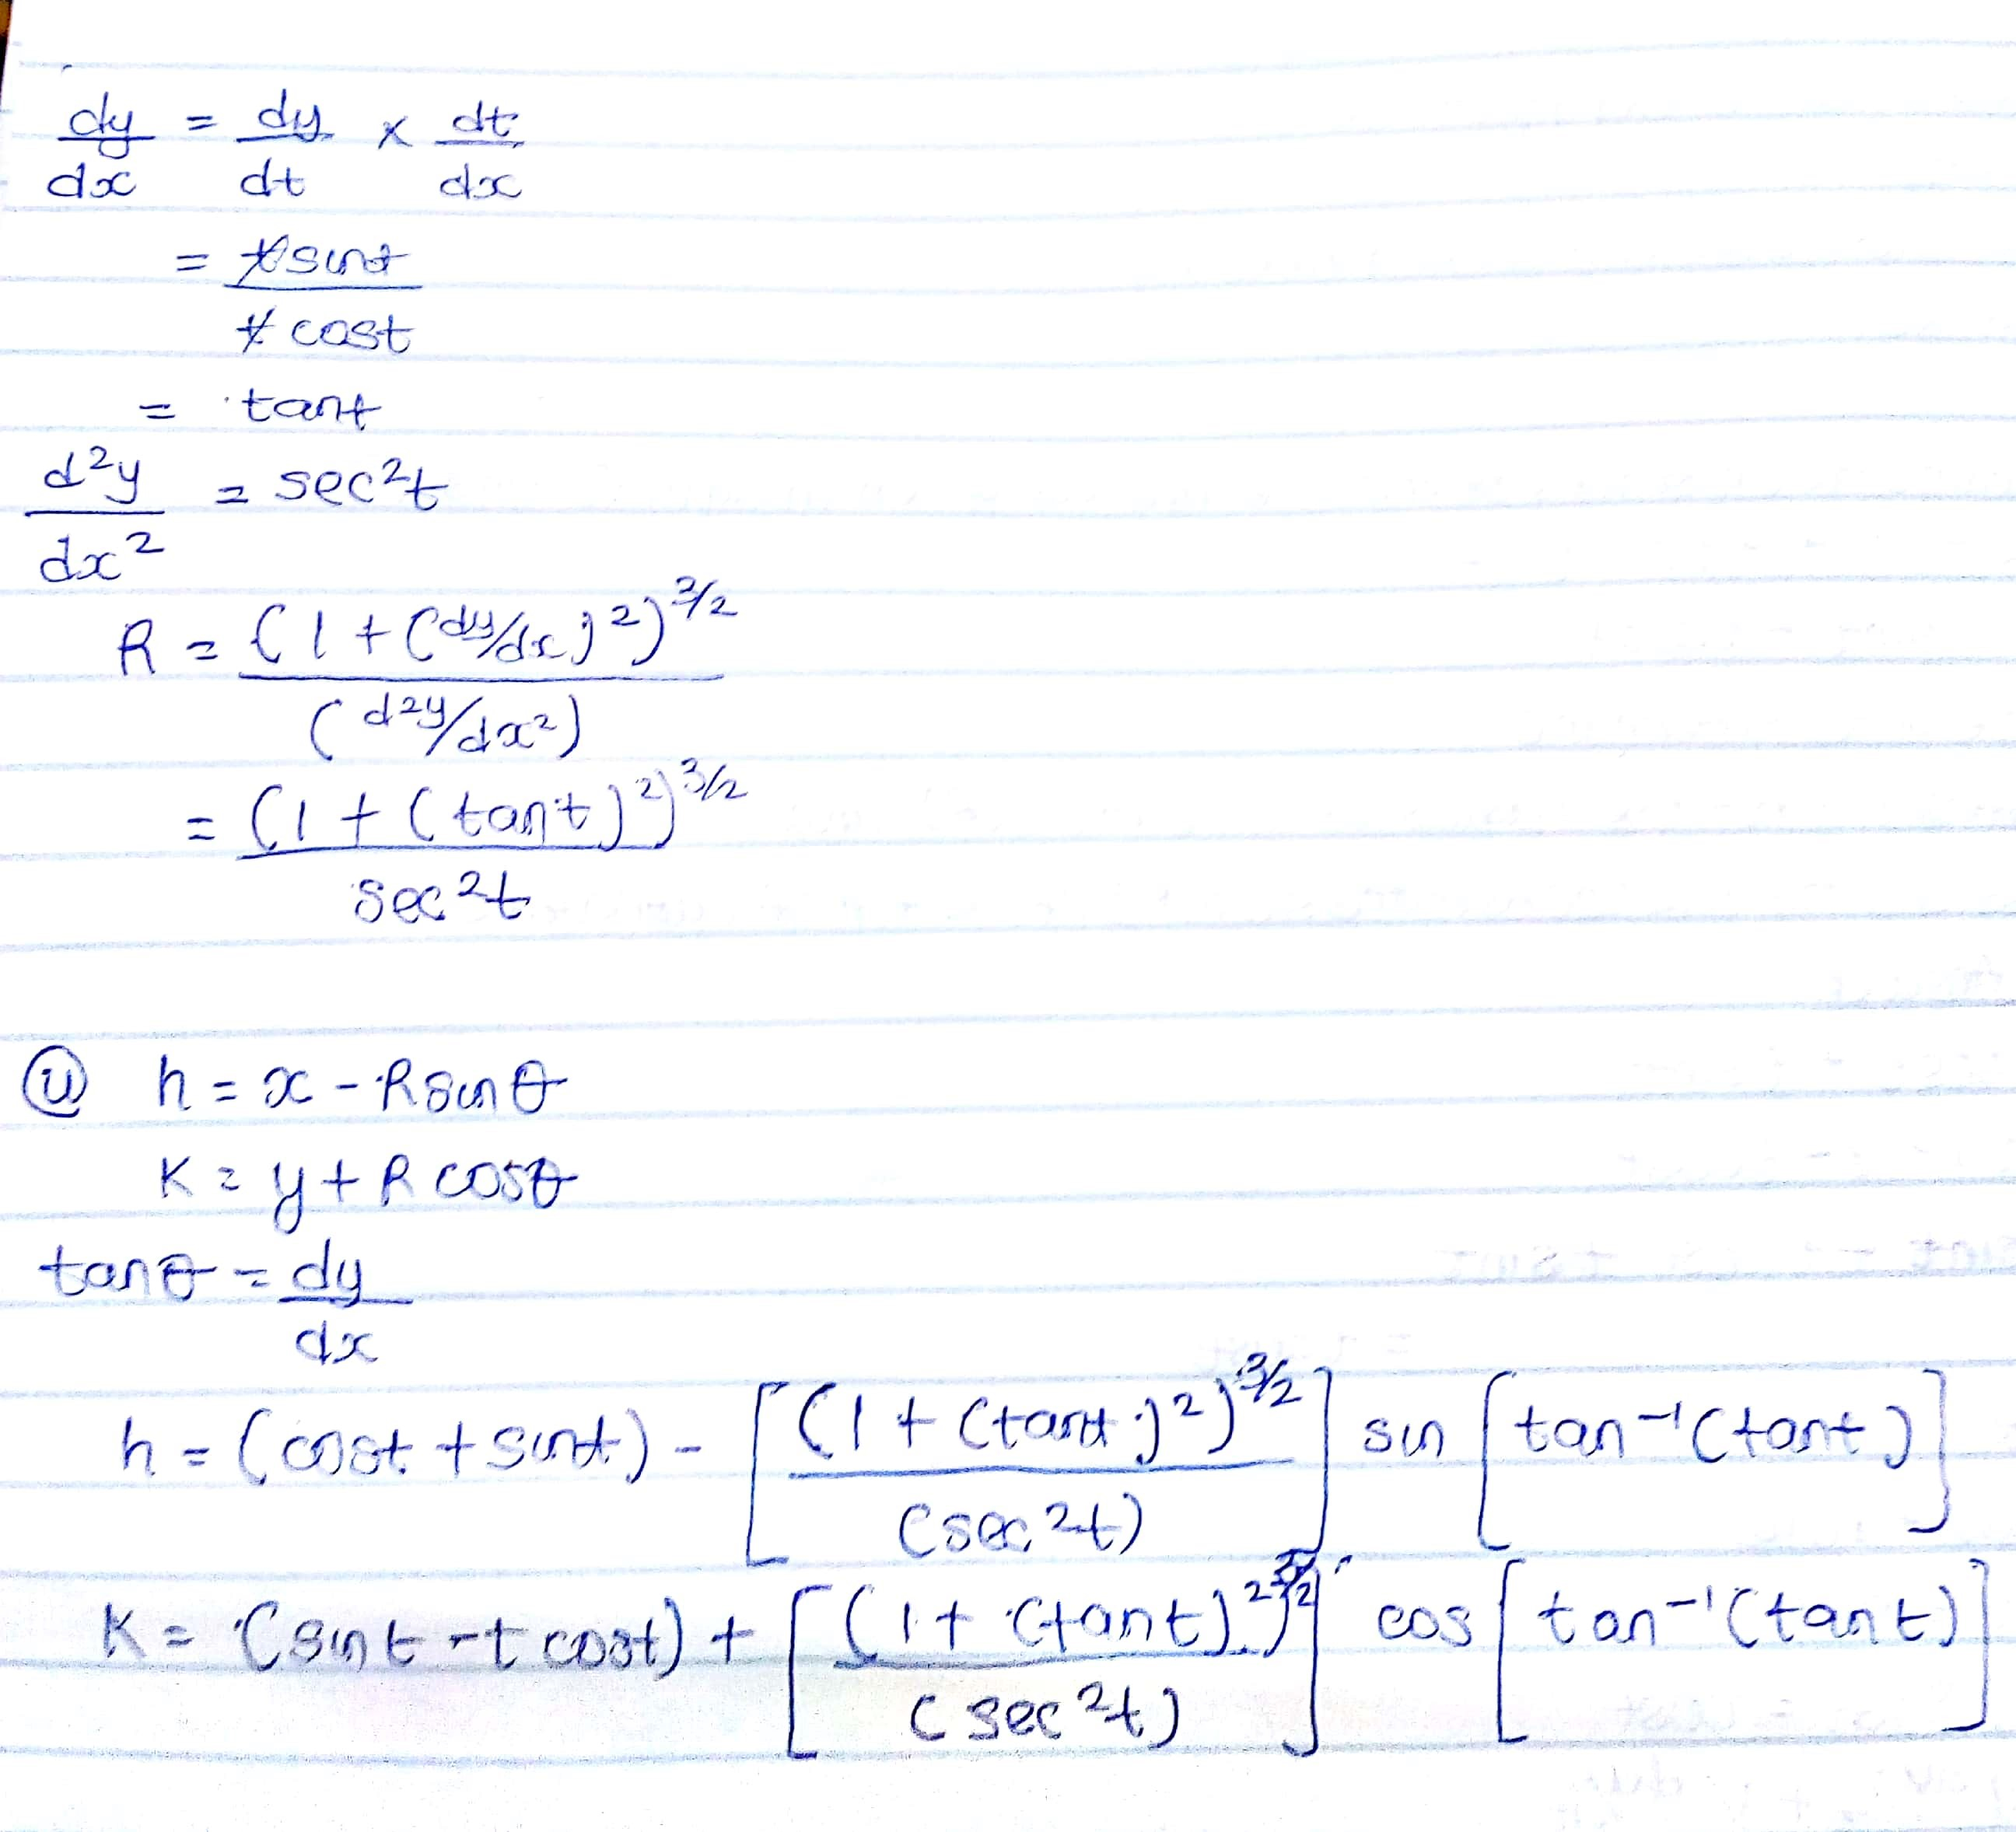 dy/dx = dy/dt × dt/dx
= t sint / t cost
= tant
d²y/dx² = sec²t
R = (1 + (dy/dx)²)^3/2 / (d²y/dx²)
= (1 + (tant)²)^3/2 / sec²t
ii h = x - R sinθ
K = y + R cosθ
tanθ = dy/dx
h = (cost + sint) - [(1 + (tant)²)^3/2 / (sec²t)] sin [tan⁻¹(tant)]
K = (sint - t cost) + [(1 + (tant)²)^3/2 / (sec²t)] cos [tan⁻¹(tant)]